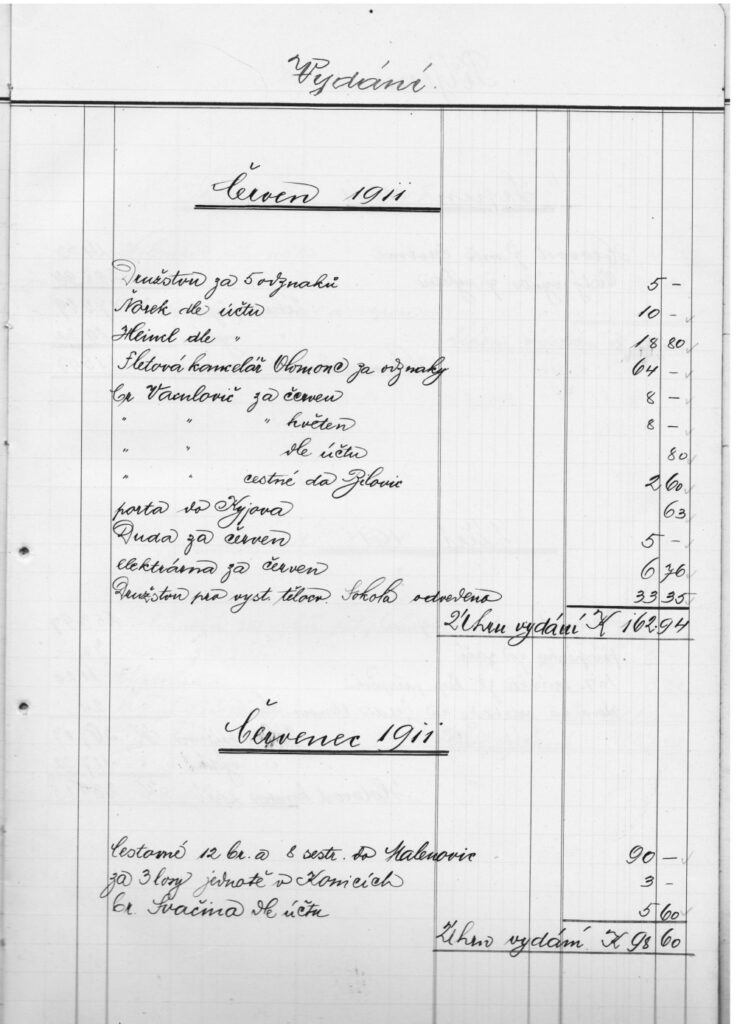 Vydání.
Červen 1911
Družstvu za 5 odznaků 5 -
Norek dle účtu 10 -
Heiml dle " 18 80
Župová kancelář Olomouc za odznaky 64 -
br. Vaculovič za červen 8 -
" " " květen 8 -
" " dle účtu 80
" " cestné do 2 60
porta do Kyjova 63
Duda za červen 5 -
elektrárna za červen 6 76
Družstvu pro vyst. tělocv. Sokola odvedeno 33 35
Úhrn vydání K 162.94
Červenec 1911
Cestovné 12 br. a 8 sestr. do Malenovic 90 -
za 3 losy jednotě v Konicích 3 -
br. Svačina dle účtu 5 60
Úhrn vydání K 98 60